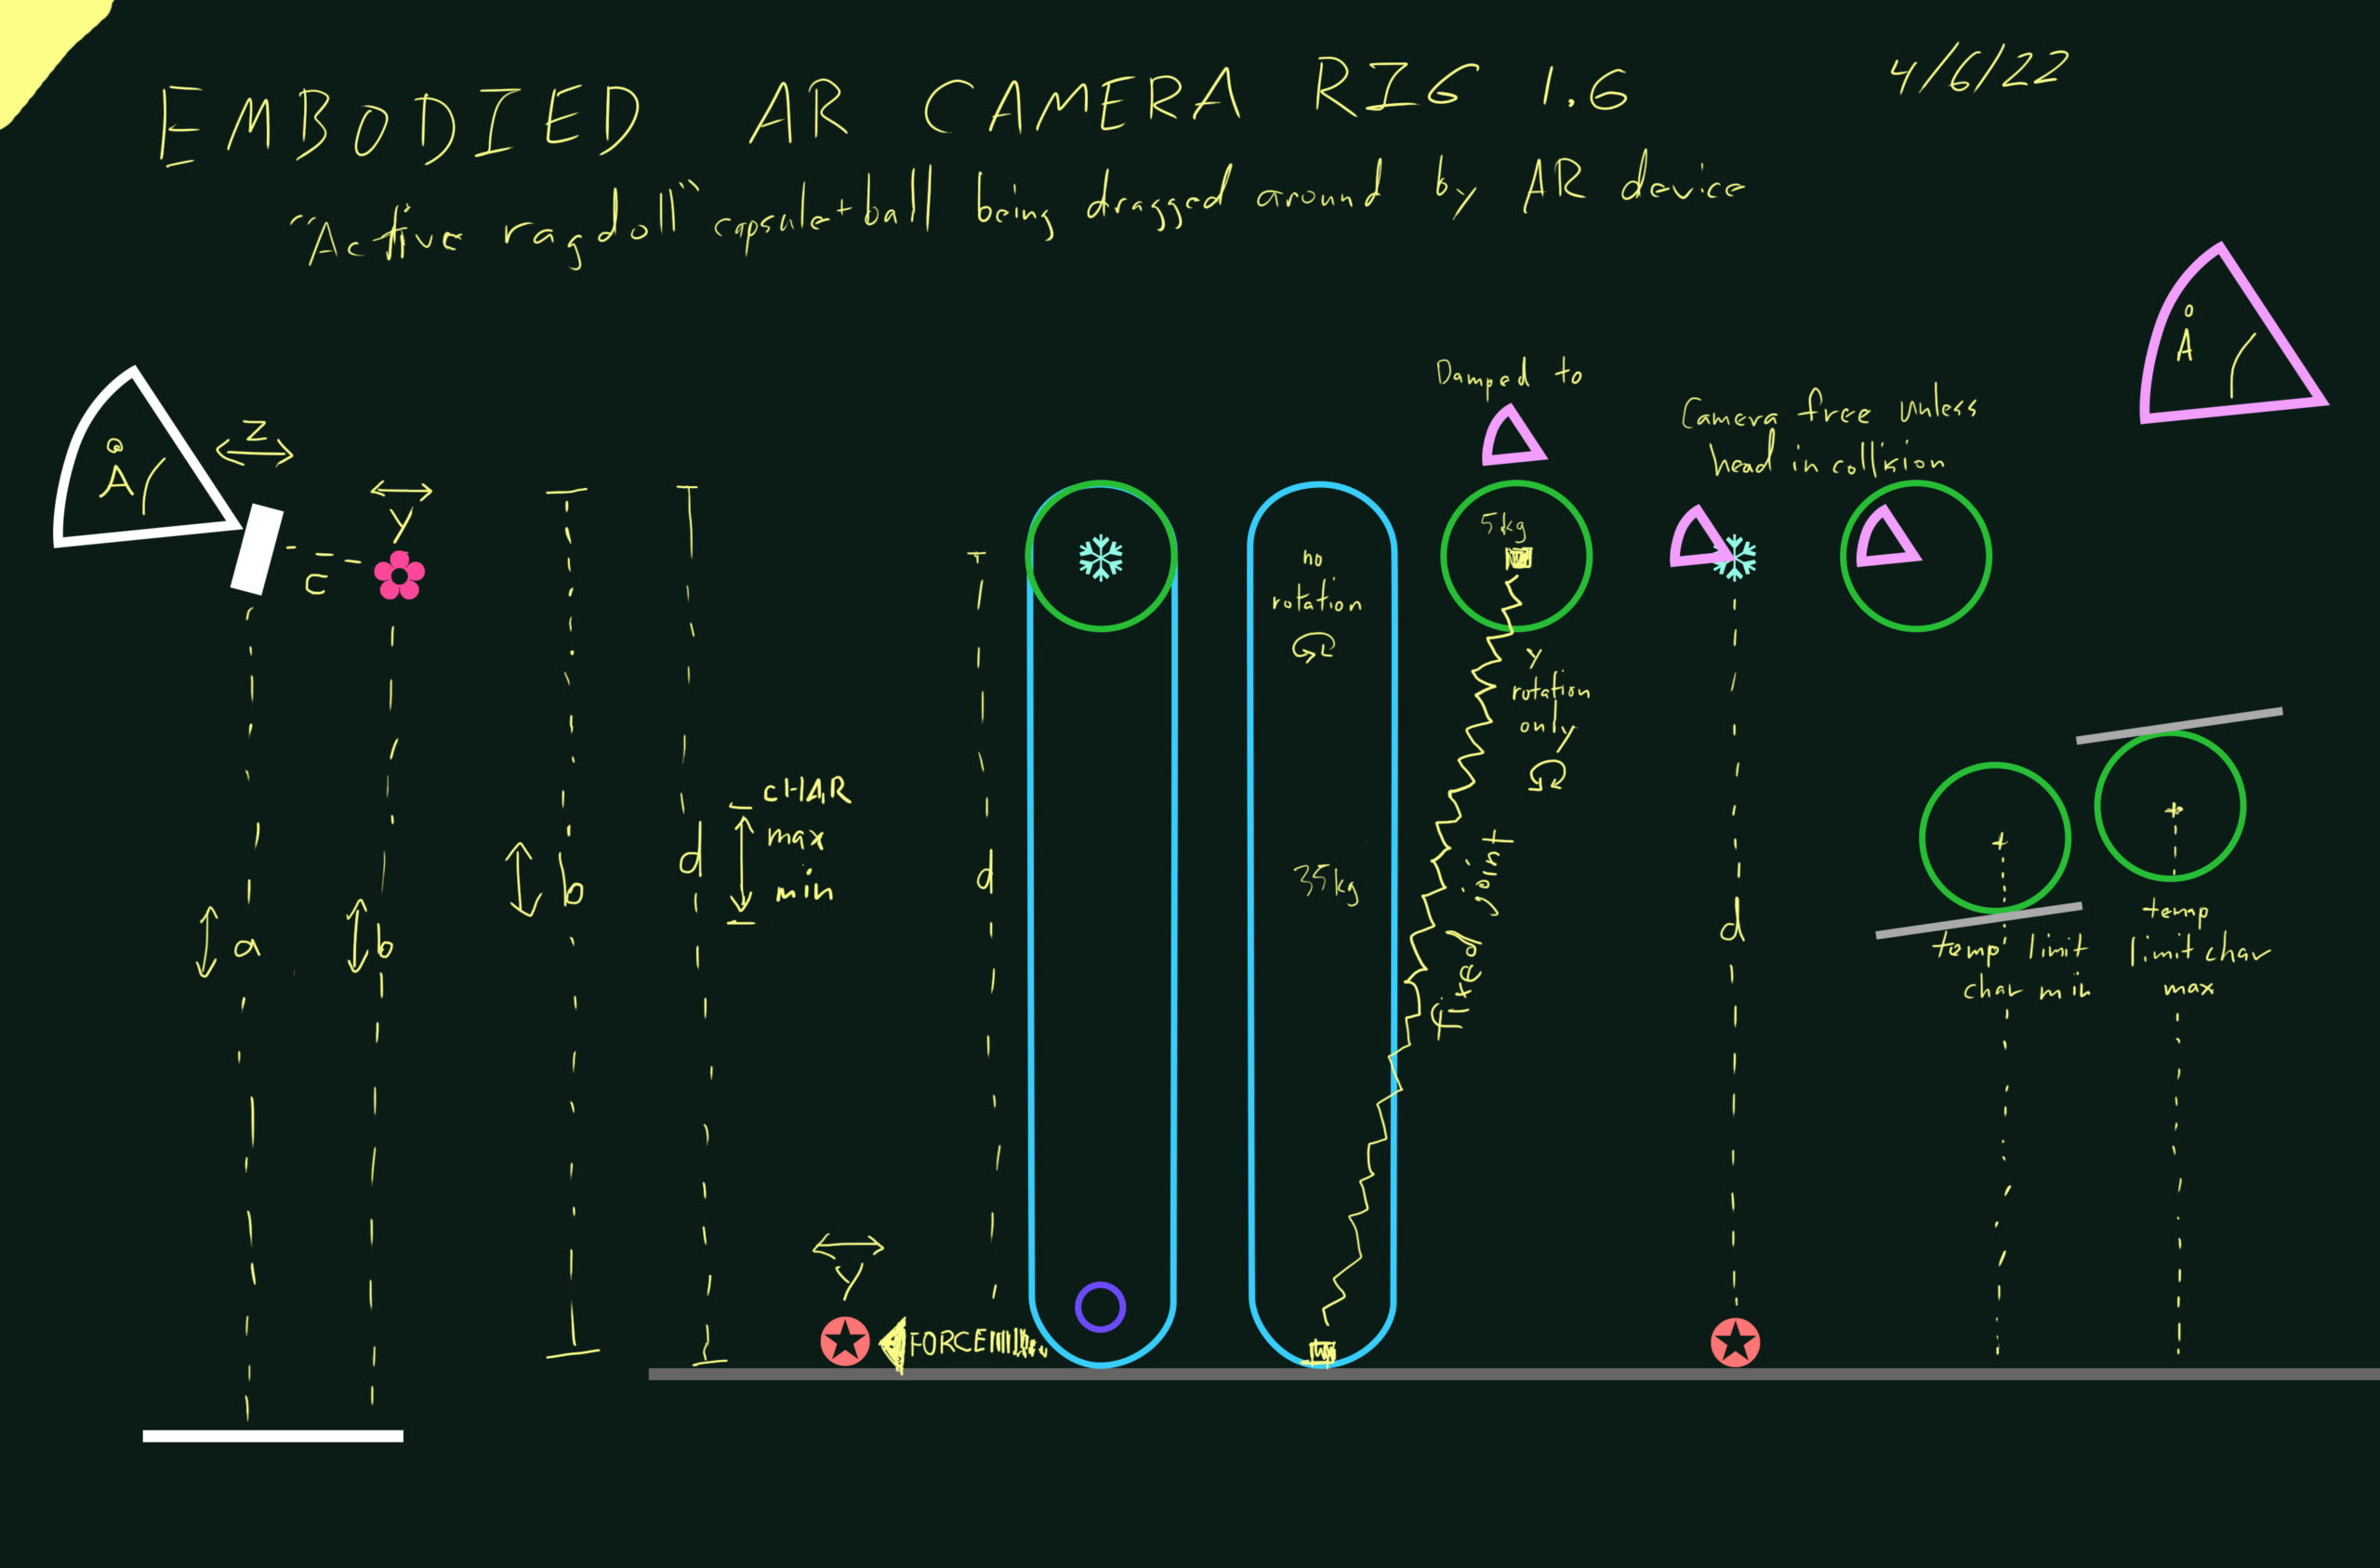 EMBODIED AR CAMERA RIG 1.6
4/6/22
"Active ragdoll" capsule+ball being dragged around by AR device
Å
z
y
c
a
b
b
d
CHAR
max
min
y
FORCE
d
no
rotation
35kg
Damped to
5kg
y
rotation
only
fixed joint
Camera free unless
head in collision
d
Å
temp limit
char min
temp
limit char
max